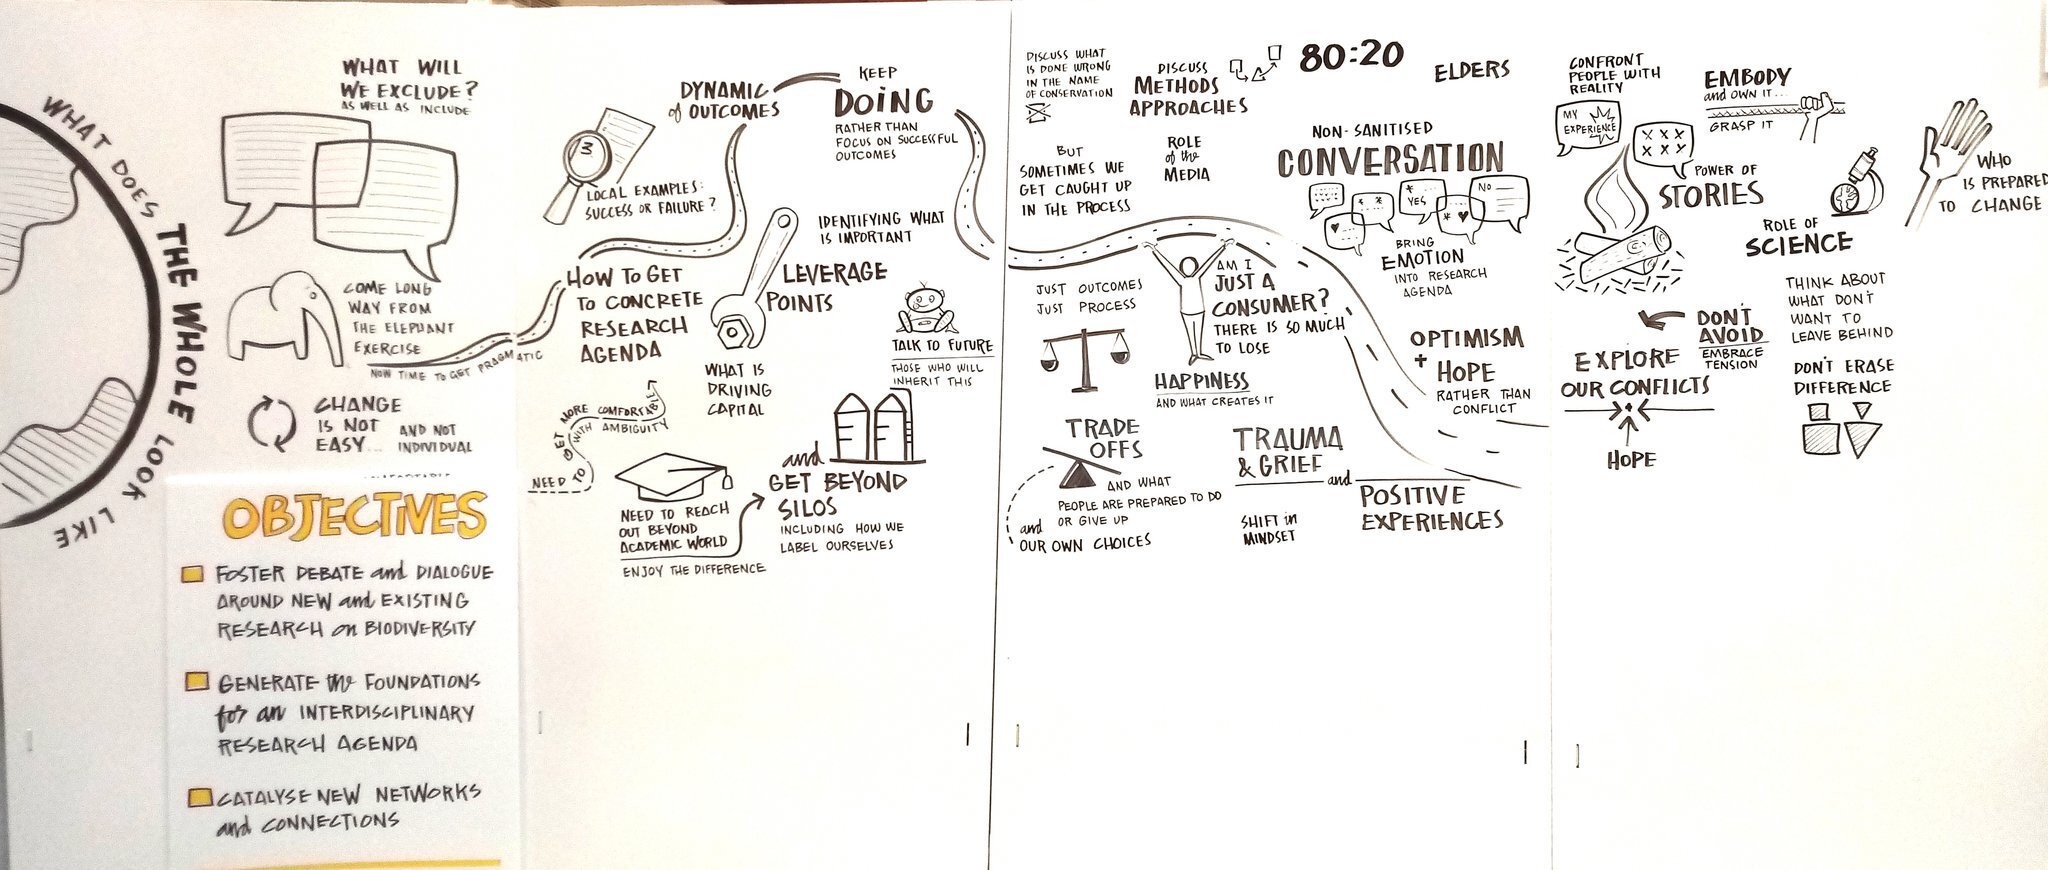 WHAT DOES THE WHOLE LOOK LIKE
WHAT WILL
WE EXCLUDE?
AS WELL AS INCLUDE
COME LONG
WAY FROM
THE ELEPHANT
EXERCISE
NOW TIME TO GET PRAGMATIC
CHANGE
IS NOT
EASY...
AND NOT
INDIVIDUAL
OBJECTIVES
FOSTER DEBATE and DIALOGUE
AROUND NEW and EXISTING
RESEARCH on BIODIVERSITY
GENERATE the FOUNDATIONS
for an INTERDISCIPLINARY
RESEARCH AGENDA
CATALYSE NEW NETWORKS
and CONNECTIONS
3
LOCAL EXAMPLES:
SUCCESS OR FAILURE?
DYNAMIC
of OUTCOMES
KEEP
DOING
RATHER THAN
FOCUS ON SUCCESSFUL
OUTCOMES
HOW TO GET
TO CONCRETE
RESEARCH
AGENDA
IDENTIFYING WHAT
IS IMPORTANT
LEVERAGE
POINTS
WHAT IS
DRIVING
CAPITAL
TALK TO FUTURE
THOSE WHO WILL
INHERIT THIS
NEED TO GET MORE COMFORTABLE
WITH AMBIGUITY
NEED TO REACH
OUT BEYOND
ACADEMIC WORLD
ENJOY THE DIFFERENCE
and
GET BEYOND
SILOS
INCLUDING HOW WE
LABEL OURSELVES
DISCUSS WHAT
IS DONE WRONG
IN THE NAME
OF CONSERVATION
DISCUSS
METHODS
APPROACHES
80:20
ELDERS
BUT
SOMETIMES WE
GET CAUGHT UP
IN THE PROCESS
ROLE
of the
MEDIA
NON-SANITISED
CONVERSATION
YES
NO
BRING
EMOTION
INTO RESEARCH
AGENDA
JUST OUTCOMES
JUST PROCESS
AM I
JUST A
CONSUMER?
THERE IS SO MUCH
TO LOSE
HAPPINESS
AND WHAT CREATES IT
OPTIMISM
+ HOPE
RATHER THAN
CONFLICT
TRADE
OFFS
AND WHAT
PEOPLE ARE PREPARED TO DO
OR GIVE UP
and
OUR OWN CHOICES
TRAUMA
& GRIEF
and
POSITIVE
EXPERIENCES
SHIFT in
MINDSET
CONFRONT
PEOPLE WITH
REALITY
MY
EXPERIENCE
EMBODY
and OWN IT...
GRASP IT
POWER OF
STORIES
ROLE OF
SCIENCE
WHO
IS PREPARED
TO CHANGE
DON'T
AVOID
EMBRACE
TENSION
EXPLORE
OUR CONFLICTS
HOPE
THINK ABOUT
WHAT DON'T
WANT TO
LEAVE BEHIND
DON'T ERASE
DIFFERENCE